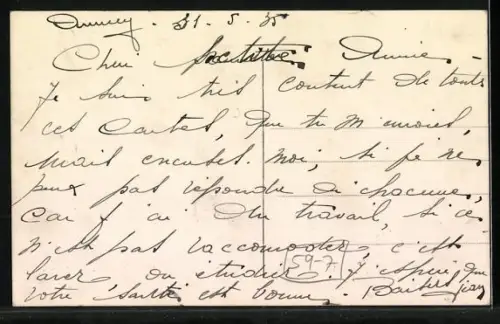 Annecy. 31-5-35
Cher petite Annie -
Je suis très content de toute
ces cartes, que tu m'envoies,
mais excuses. moi, si je ne
peux pas répondre à chacune,
car j'ai du travail, si ce
n'est pas raccomoder, c'est
laver ou etudier. J'espère que
votre santé est bonne. Baisers
59-7